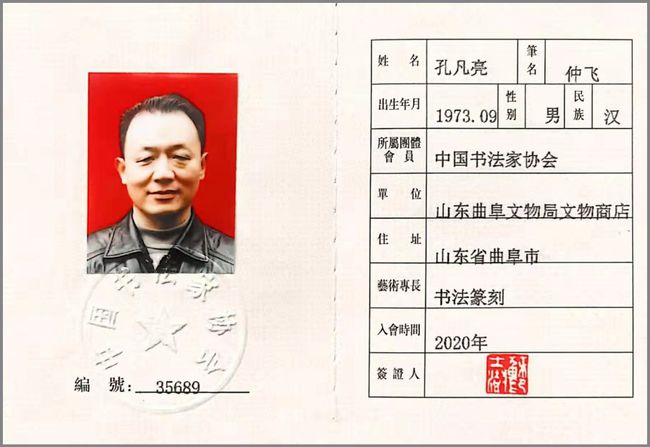 中国书法家协会
編 號: 35689
姓 名 孔凡亮 筆名 仲飞
出生年月 1973.09 性別 男 民族 汉
所屬團體會員 中国书法家协会
單 位 山东曲阜文物局文物商店
住 址 山东省曲阜市
藝術專長 书法篆刻
入會時間 2020年
簽證人